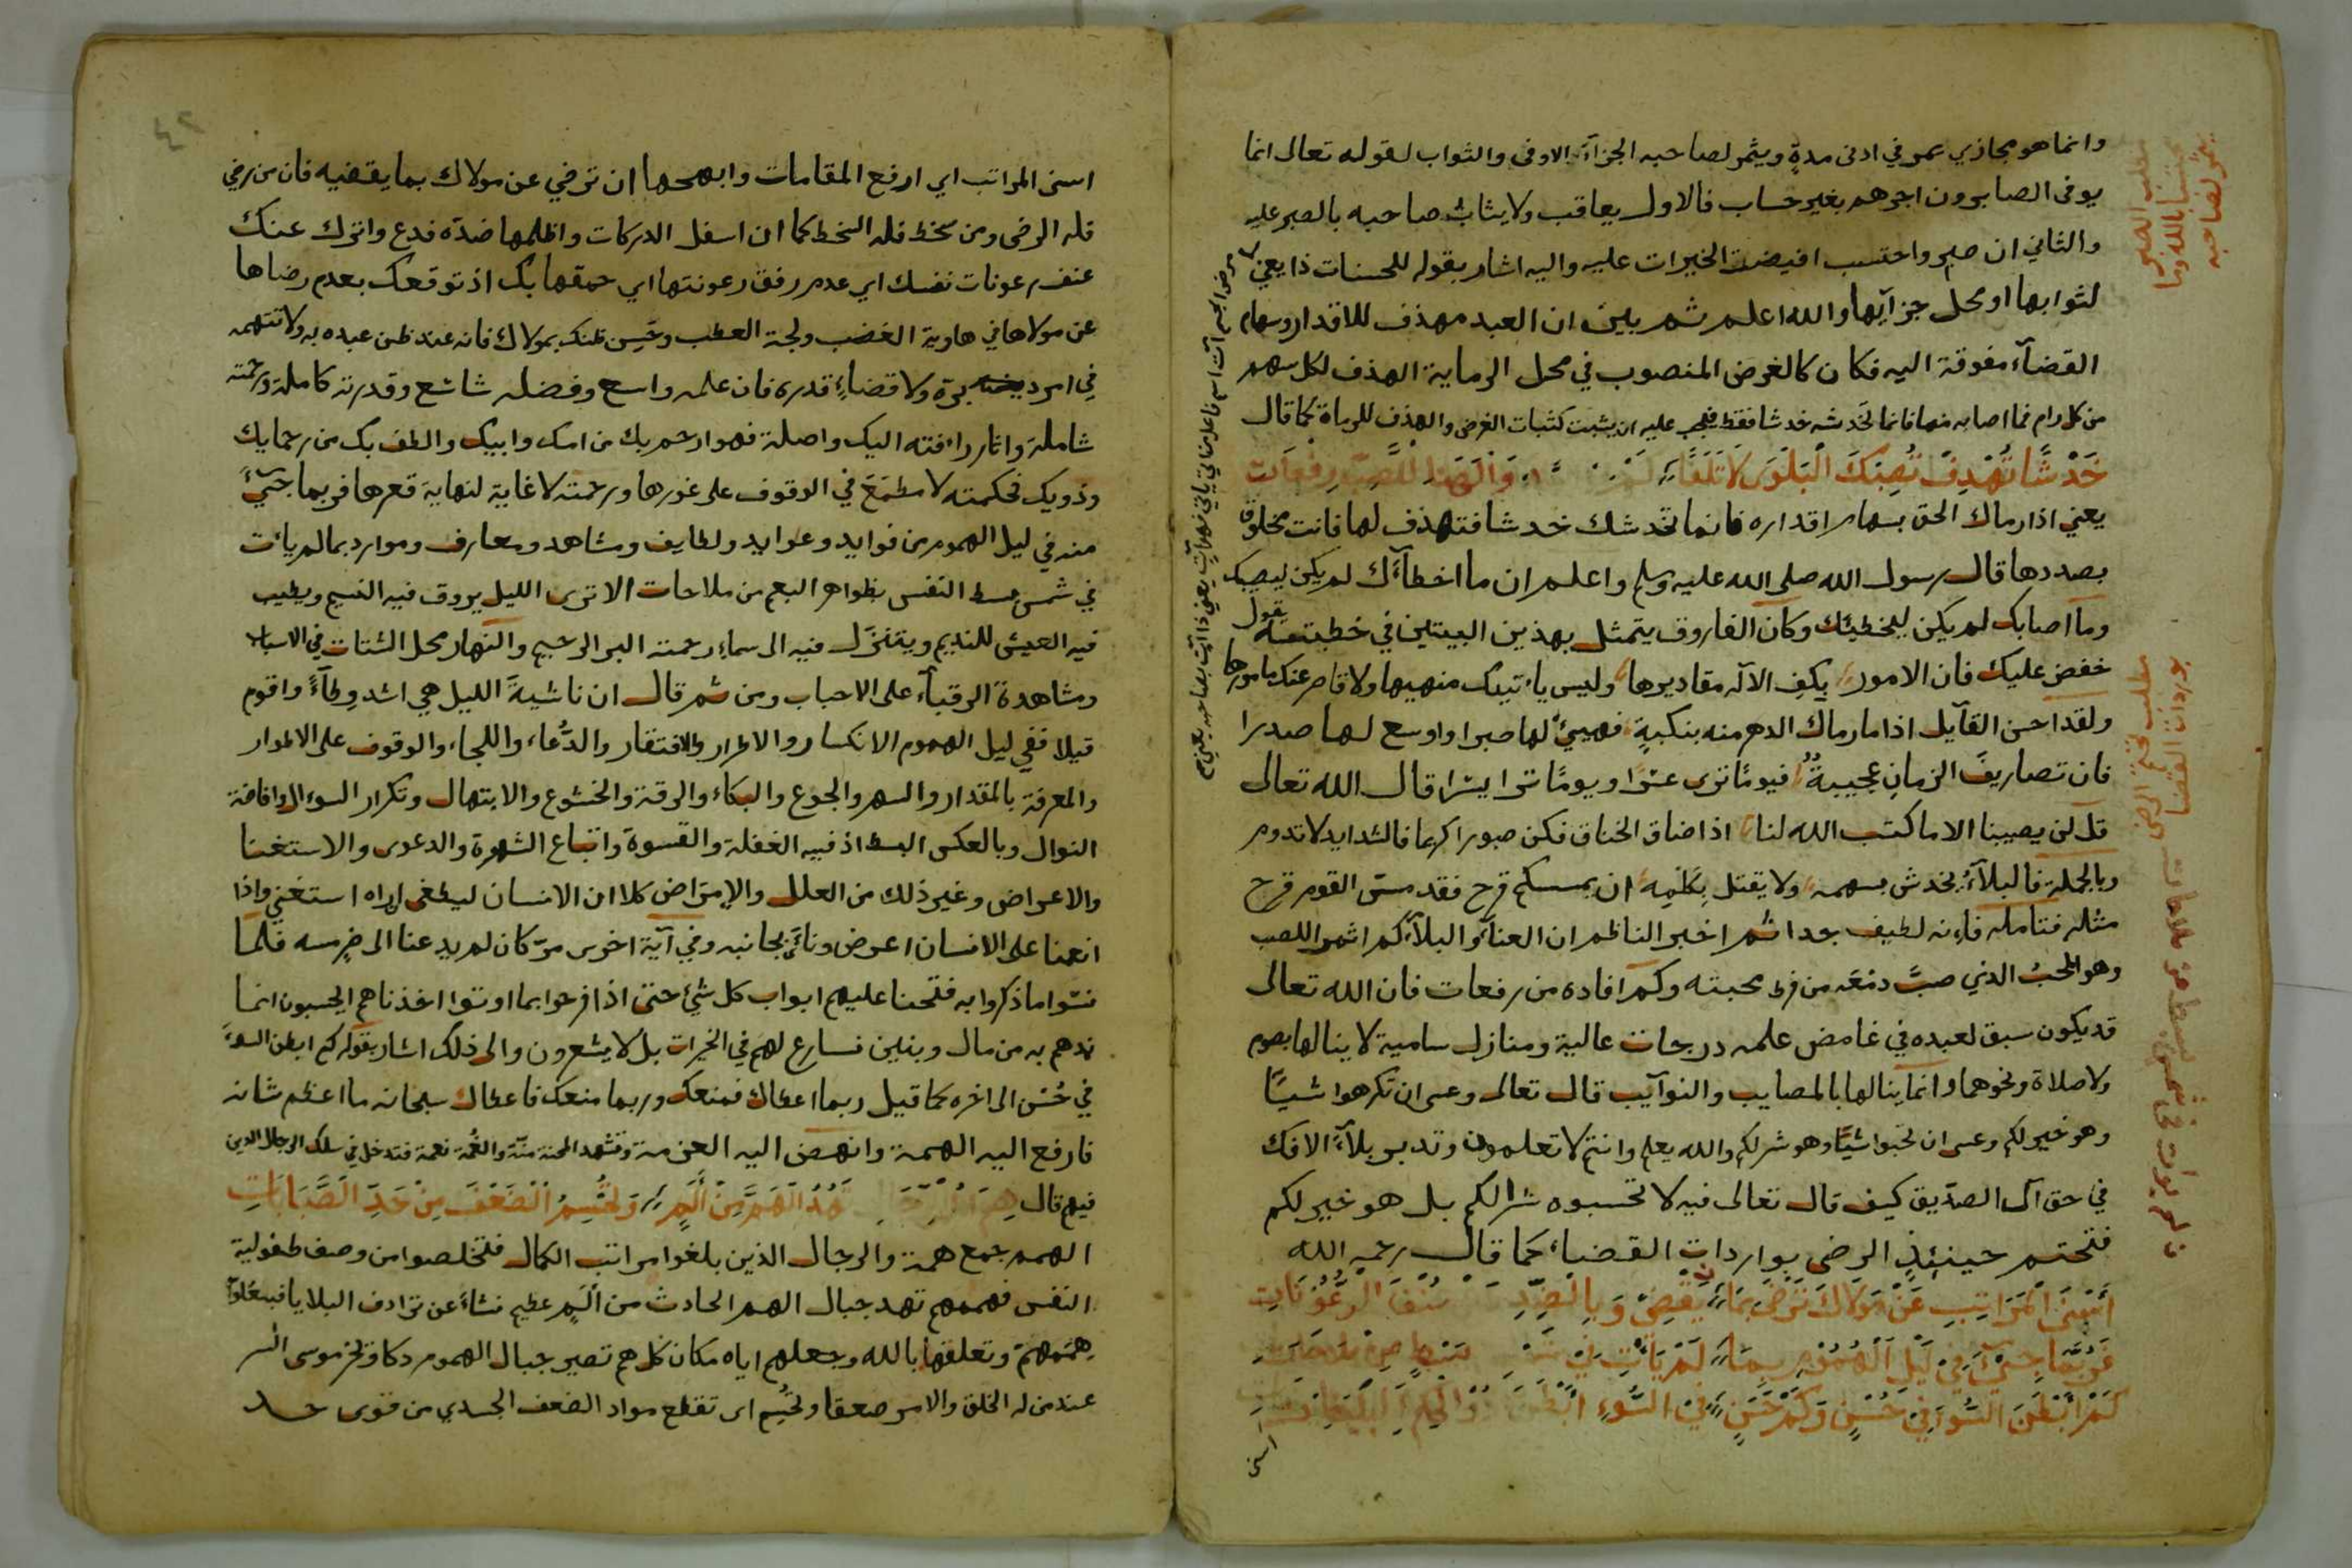 وانما هو مجازي يمر في ادنى مدةٍ ويثمر لصاحبه الجزآء الاوفى والثواب لقوله تعالى انما
يوفى الصابرون اجرهم بغير حساب فالاول يعاقب ولا يثاب صاحبه بالصبر عليه
والثاني ان صبر واحتسب افيضت الخيرات عليه واليه اشار بقوله للحسنات ذا يعني
لثوابها او محل جزآيها والله اعلم ثم بين ان العبد مهذف للاقدار وسهام
القضآء مفوقة اليه فكان كالغرض المنصوب في محل الرماية الهذف لكل سهم
من كل رام فما اصابه منها فانما تخدشه خدشا فقط فيجب عليه ان يثبت كثبات الغرض والهذف للرماة كما قال
خَدْشًا تُهْدِفْ تُصِبْكَ الْبَلْوَى لِلصَّبِّ رِفْعَات
يعني اذا رماك الحق بسهام اقداره فانما تخدشك خدشا فتهذف لها فانت مخلوق
بصددها قال رسول الله صلى الله عليه وسلم واعلم ان ما اخطآءَك لم يكن ليصيبك
وما اصابك لم يكن ليخطيئك وكان الفاروق يتمثل بهذين البيتين في خطبته يقول
خفض عليك فان الامور بكف الاله مقاديرها وليس ياتيك منهيها ولا قاصر عنك مامورها
ولقد احسن القآيل اذا ما رماك الدهر منه بنكبةٍ فهيئ لها صبرا واوسع لها صدرا
فان تصاريف الزمان عجيبةٌ فيومًا ترى عسرًا ويومًا ترا يسرا قال الله تعالى
قل لن يصيبنا الا ما كتب الله لنا اذا ضاق الخناق فكن صبورا كريما فالشدايد لا تدوم
وبالجملة فالبلآءُ يخدش بسهمه ولا يقتل بِكَلْمِه ان يمسسكم قرح فقد مس القوم قرح
مثله فتامله فانه لطيف جدا ثم اخبر الناظم ان العنآء والبلآء كم اثمرا للصب
وهو المحبُ الذي صبَّ دمعَه من فرط محبته وكم افاده من رفعات فان الله تعالى
قد يكون سبق لعبده في غامض علمه درجات عالية ومنازل سامية لا ينالها بصوم
ولا صلاة ونحوهما وانما ينالها بالمصايب والنوآيب قال تعالى وعسى ان تكرهوا شيئًا
وهو خير لكم وعسى ان تحبوا شيئًا وهو شر لكم والله يعلم وانتم لا تعلمون وتدبر بلآءَ الافك
في حق آل الصدّيق كيف قال تعالى فيه لا تحسبوه شرا لكم بل هو خير لكم
فتحتم حينئذٍ الرضى بواردات القضاء كما قال رحمه الله
أَسْنَى الْمَرَاتِبِ عَنْ مَوْلَاكَ تَرْضَى بِمَا يَقْضِىْ وَبِالضِّدِّ الرُّعُوْنَاتِ
فَرُبَّمَا جِئْ فِيْ لَيْلِ الْهُمُوْمِ بِمَا لَمْ يَأْتِ فِيْ
كَمْ أَبْطَنَ السُّوءَ فِيْ حُسْنٍ وَكَمْ حَسَنٍ فِيْ السُّوْءِ أَبْطَنَ
اسنى
مطلب الصبر
يثمر لصاحبه
مطلب تحتم الرضى
بواردات القضا
٤٢
اسنى المراتب اي ارفع المقامات وابهجها ان ترضي عن مولاك بما يقضيه فان من رضي
فله الرضى ومن سخط فله السخط كما ان اسفل الدركات واظلمها ضده فدع واترك عنك
عنف رعونات نفسك اي عدم رفق رعونتها اي حمقها بك اذ توقعك بعدم رضاها
عن مولاها في هاوية الغضب ولجة العطب وحَسِن ظنك بمولاك فانه عند ظن عبده به ولا تتهمه
في امر دبره ولا قضاءٍ قدره فان علمه واسع وفضله شاسع وقدرته كاملة ورحمته
شاملة واثار رافته اليك واصلة فهو ارحم بك من امك وابيك والطف بك من رحمايك
وذويك فحكمته لا مطمَعَ في الوقوف على غورها ورحمته لا غاية لنهاية قعرها فربما جئَ
منه في ليل الهموم من فوايد وعوايد ولطايف ومشاهد ومعارف وموارد بما لم يات
في شمس بسط النفس بظواهر النعم من ملاحات الا ترى الليل يروق فيه النسيم ويطيب
فيه العيش للنديم ويتنزل فيه الى سماء رحمته البر الرحيم والنهار محل الشتات في الاسباب
ومشاهدة الرقبآء على الاحباب ومن ثم قال ان ناشية الليل هي اشد وطآءً واقوم
قيلا ففي ليل الهموم الانكسار والاضرار والافتقار والدُّعاء واللجاء والوقوف على الاطوار
والمعرفة بالمقدار والسهر والجوع والبكاء والرقة والخشوع والابتهال وتكرار السوءال وافاضة
النوال وبالعكس البسط اذ فيه الغفلة والقسوة واتباع الشهوة والدعوى والاستغنا
والاعراض وغير ذلك من العلل والامراض كلا ان الانسان ليطغى ان راه استغنى واذا
انعمنا على الانسان اعرض وناءَ بجانبه وفي آية اخرى مرّ كان لم يدعنا الى ضرٍ مسه فلما
نسوا ما ذكروا به فتحنا عليهم ابواب كل شئ حتى اذا فرحوا بما اوتوا اخذناهم ايحسبون انما
نمدهم به من مال وبنين نسارع لهم في الخيرات بل لا يشعرون والى ذلك اشار بقوله كم ابطن السوءَ
في حُسْن الى اخره كما قيل ربما اعطاك فمنعك وربما منعك فاعطاك سبحانه ما اعظم شانه
فارفع اليه الهمة وانهض اليه العزمة وتشهد المحنة منَّة والغُمة نعمة فتدخل في سلك الرجال الذين
فيهم قال هِمَمُ تَهُدُّ الْهَمَّ مِنْ أَلَمٍ وَتَحْسِمُ الضَّعْفَ مِنْ حَدِّ الصَّبَابَاتِ
الهمم جمع همة والرجال الذين بلغوا مراتب الكمال فتخلصوا من وصف طفولية
النفس فهممهم تهد جبال الهم الحادث من أَلَمٍ عظيم نشاءَ عن ترادف البلايا فبعلو
هِمَمِهمْ وتعلقها بالله وجعلهم اياه مكان كل هم تصير جبال الهموم دكا وتخر موسى السر
عند من له الخلق والامر صعقا وتَحْسِم اى تقطع مواد الضعف الجسدي من قوى حد